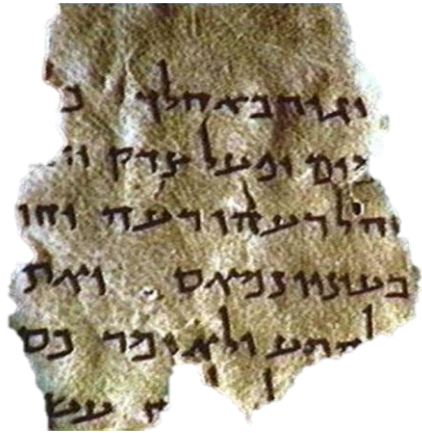 יגור באהלך מ
ים ופעל צדק וד
ה לרעהו רעה וחר
בעיניו נמאס ואת
להרע ולא ימר כס
עש